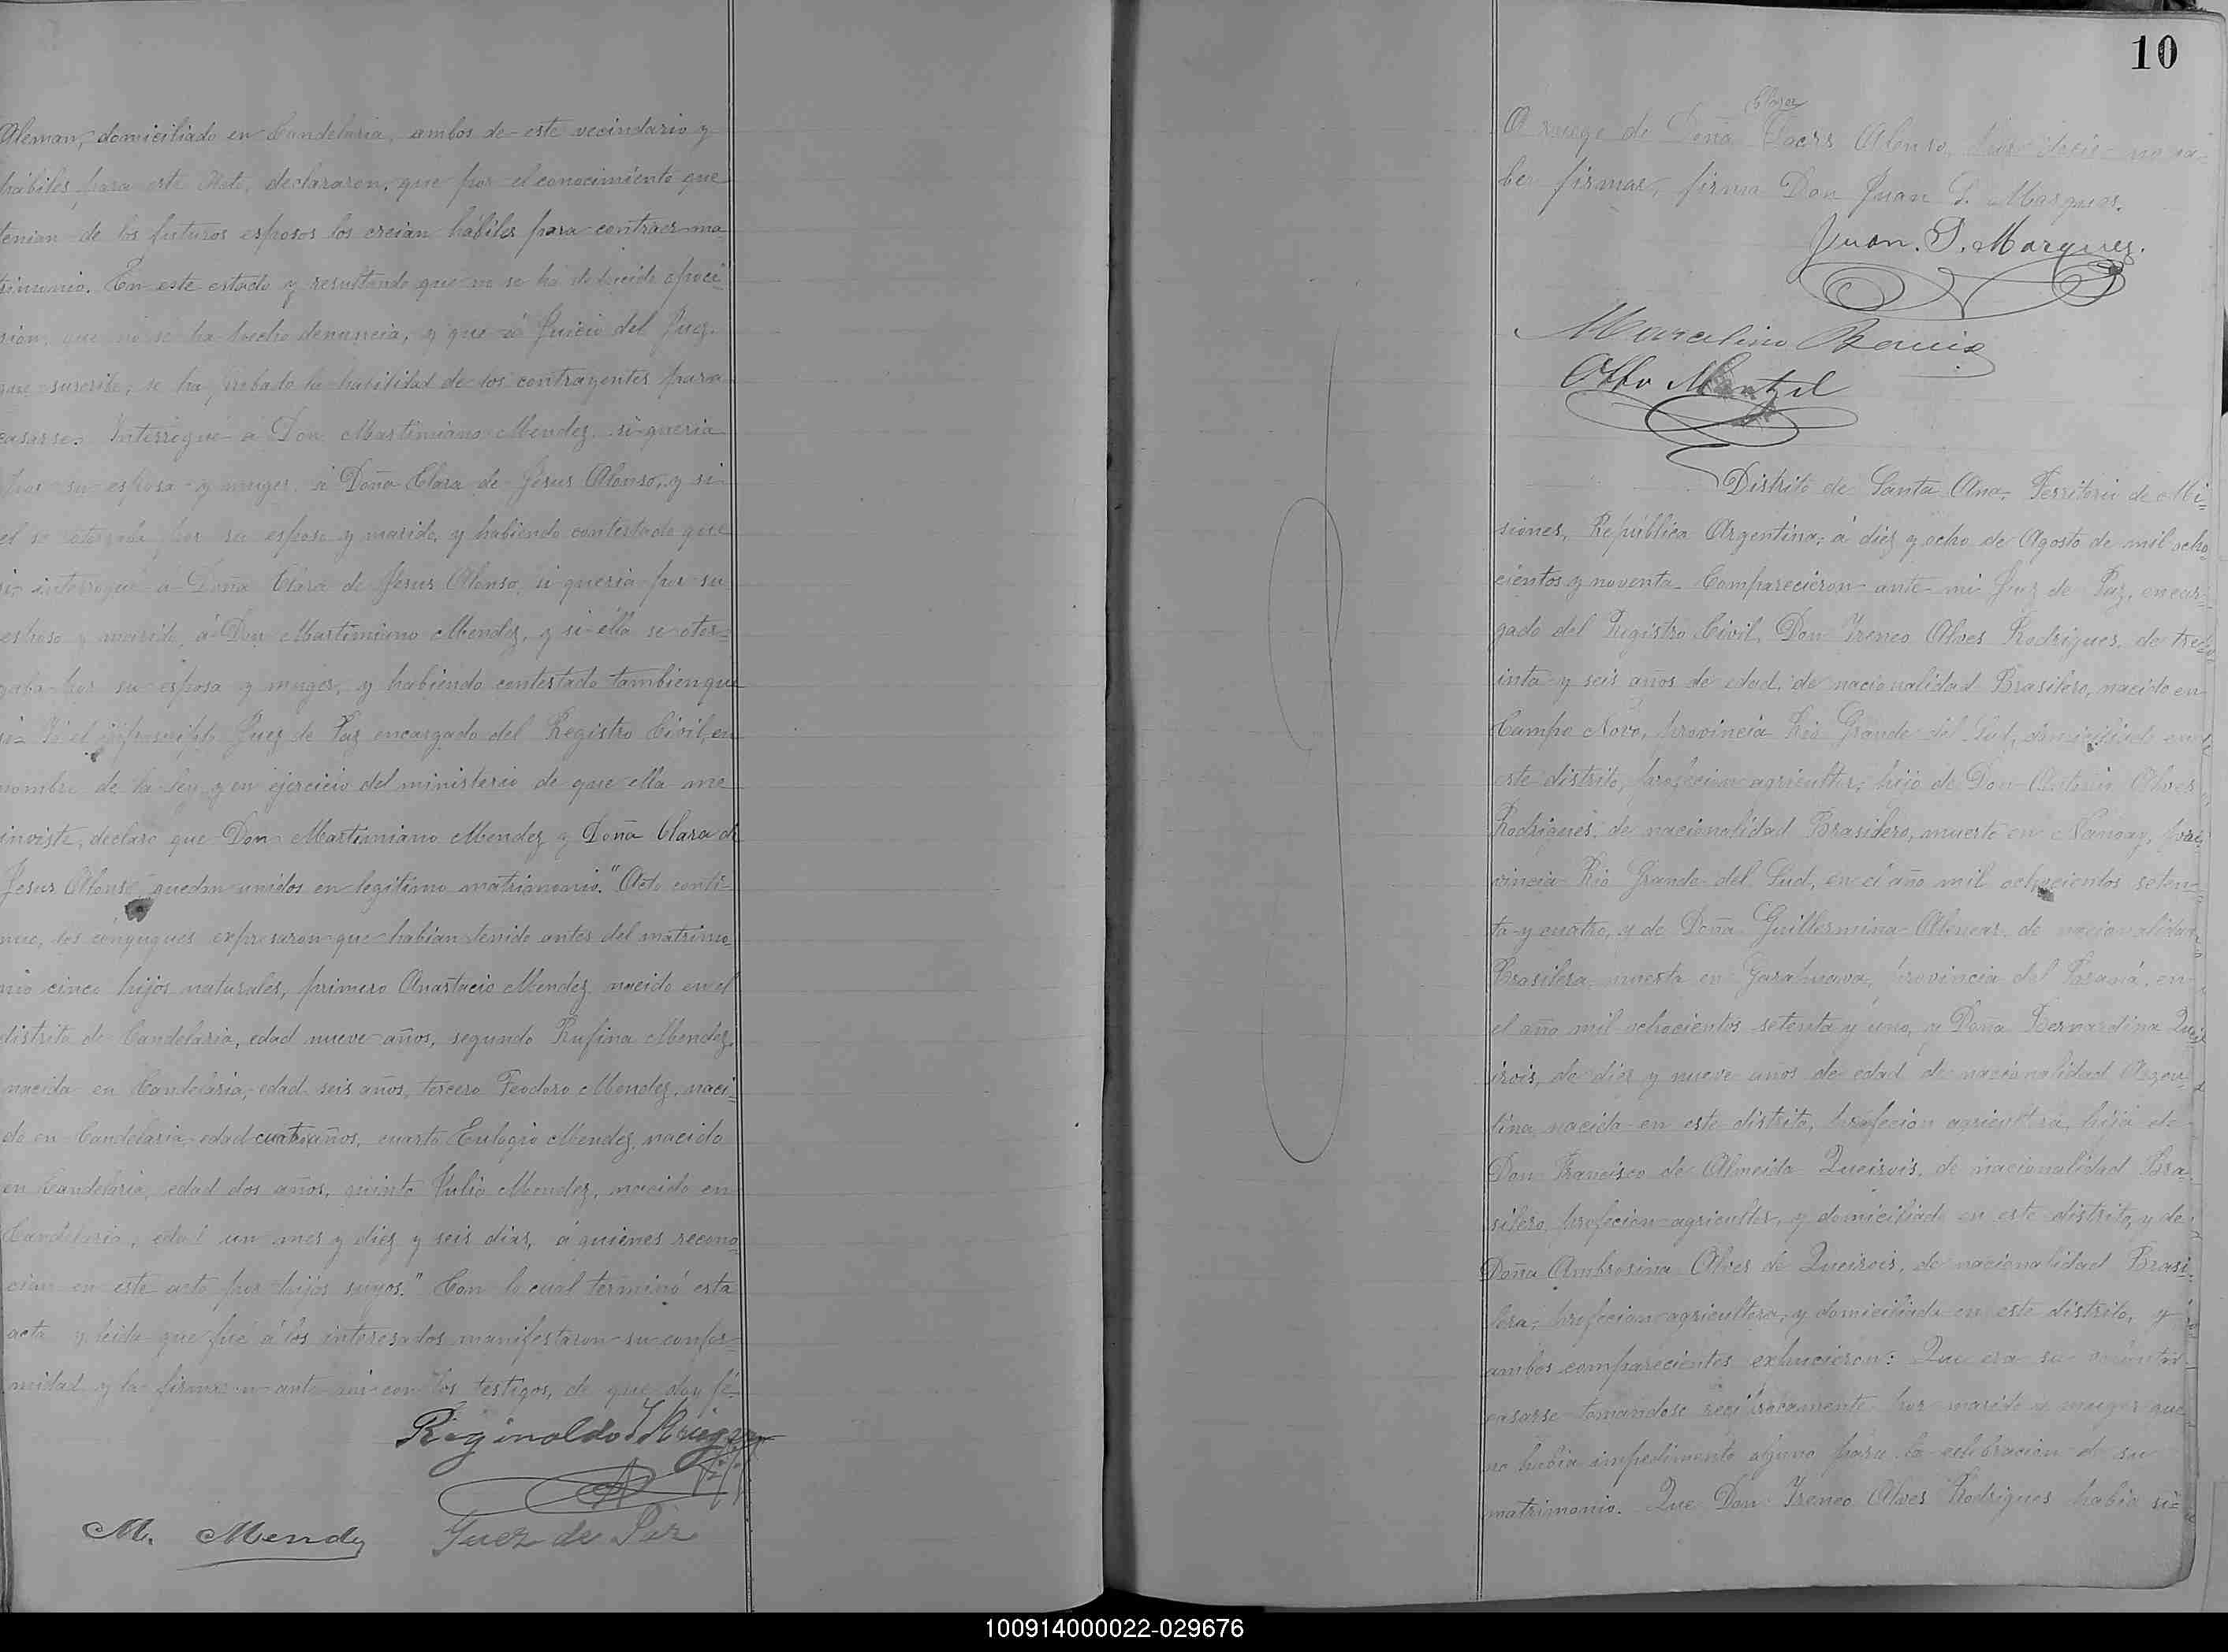 Aleman, domiciliado en Candelaria, ambos de este vecindario y
hábiles para este Acto, declararon, que por el conocimiento que
tenian de los futuros esposos los creian hábiles para contraer ma-
trimonio. En este estado y resultando que no se ha deducido oposi-
sion, que no se ha hecho denuncia, y que á Juicio del Juez.
que suscribe, se ha probado la habilidad de los contrayentes para
casarse. Interrogué á Don Martiniano Mendez si queria
por su esposa y muger, á Doña Clara de Jesus Alonso, y si
el se otorgaba por su esposo y marido, y habiendo contestado que
si, interrogué á Doña Clara de Jesus Alonso, si queria por su
esposo y marido, á Don Martiniano Mendez, y si ella se otor-
gaba por su esposa y muger, y habiendo contestado tambien que
si. Yo el infrascripto Juez de Paz encargado del Registro Civil, en
nombre de la Ley y en ejercicio del ministerio de que ella me
inviste, declaro que Don Martiniano Mendez y Doña Clara de
Jesus Alonso "quedan unidos en legitimo matrimonio." Acto conti-
nuo, los cónyugues expresaron que habian tenido antes del matrimo-
nio cinco hijos naturales, primero Anastacio Mendez nacido en el
distrito de Candelaria, edad nueve años, segundo Rufina Mendez,
nacida en Candelaria, edad seis años, tercero Teodoro Mendez, naci-
do en Candelaria edad cuatro años, cuarto Eulogio Mendez, nacido
en Candelaria, edad dos años, quinto Julio Mendez, nacido en
Candelaria, edad un mes y diez y seis dias, á quienes recono-
cian en este acto por hijos suyos." Con lo cual terminó esta
acta y leida que fué á los interesados manifestaron su confor-
midad y la firmaron ante mi con los testigos, de que doy fé
Reginaldo
M. Mendez Juez de Paz
10
Clara
A ruego de Doña Alonso, por decir no sa-
ber firmar, firma Don Juan G. Marques.
Juan. G. Marquez.
Marcelino
Otto Mantzel
Distrito de Santa Ana, Territorio de Mi-
siones, República Argentina, á diez y ocho de Agosto de mil ocho
cientos y noventa. Comparecieron ante mi Juez de Paz, encar-
gado del Registro Civil, Don Ireneo Alves Rodrigues, de tre
inta y seis años de edad, de nacionalidad Brasilero, nacido en
Campo Novo, provincia Rio Grande del Sud, domiciliado en
este distrito, profecion agricultor, hijo de Don Antonio Alves
Rodrigues, de nacionalidad Brasilero, muerto en Nanoay, pro-
vincia Rio Grande del Sud, en el año mil ochocientos seten-
ta y cuatro, y de Doña Guillermina Alencar, de nacionalidad
Brasilera muerta en Garahuava, provincia del Paraná, en
el año mil ochocientos setenta y uno, y Doña Bernardina Que
irois, de diez y nueve años de edad de nacionalidad Argen-
tina, nacida en este distrito, profecion agricultora, hija de
Don Francisco de Almeida Queirois, de nacionalidad Bra-
silero, profecion agricultor, y domiciliado en este distrito, y de
Doña Ambrosina Alves de Queirois, de nacionalidad Brasi-
lera, profecion agricultora, y domiciliada en este distrito, y
ambos comparecientes expucieron: Que era su voluntad
casarse tomandose reciprocamente por marido y muger que
no habia impedimento alguno para la celebracion de su
matrimonio. Que Don Ireneo Alves Rodrigues habia si-
100914000022-029676